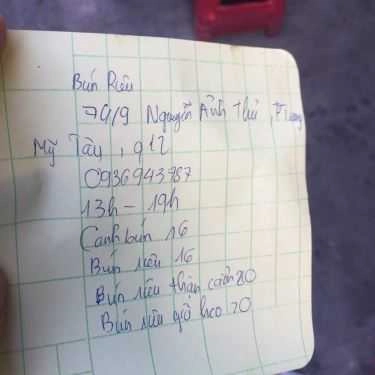 Bún Riêu
79/9 Nguyễn Ảnh Thủ, P Trung
Mỹ Tây, q12
0936943987
13h - 19h
Canh bún 16
Bún riêu 16
Bún riêu thập cẩm 20
Bún riêu giò heo 20